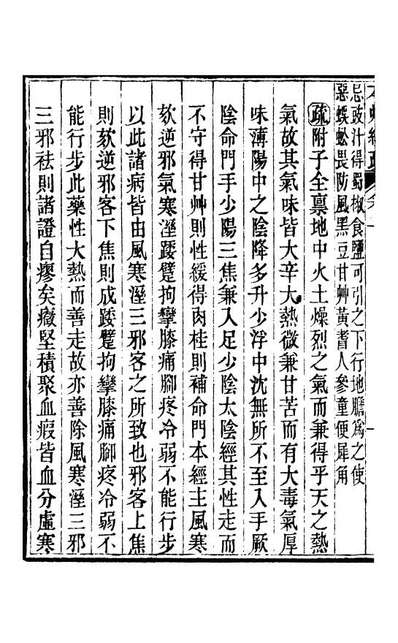 忌豉汁得蜀椒食鹽可引之下行地膽為之使
惡蜈蚣畏防風黑豆甘艸黃耆人參童便犀角
疏附子全稟地中火土燥烈之氣而兼得乎天之熱
氣故其氣味皆大辛大熱微兼甘苦而有大毒氣厚
味薄陽中之陰降多升少浮中沈無所不至入手厥
陰命門手少陽三焦兼入足少陰太陰經其性走而
不守得甘艸則性緩得肉桂則補命門本經主風寒
欬逆邪氣寒溼踒躄拘攣膝痛腳疼冷弱不能行步
以此諸病皆由風寒溼三邪客之所致也邪客上焦
則欬逆邪客下焦則成踒躄拘攣膝痛腳疼冷弱不
能行步此藥性大熱而善走故亦善除風寒溼三邪
三邪祛則諸證自瘳矣癥堅積聚血瘕皆血分虛寒